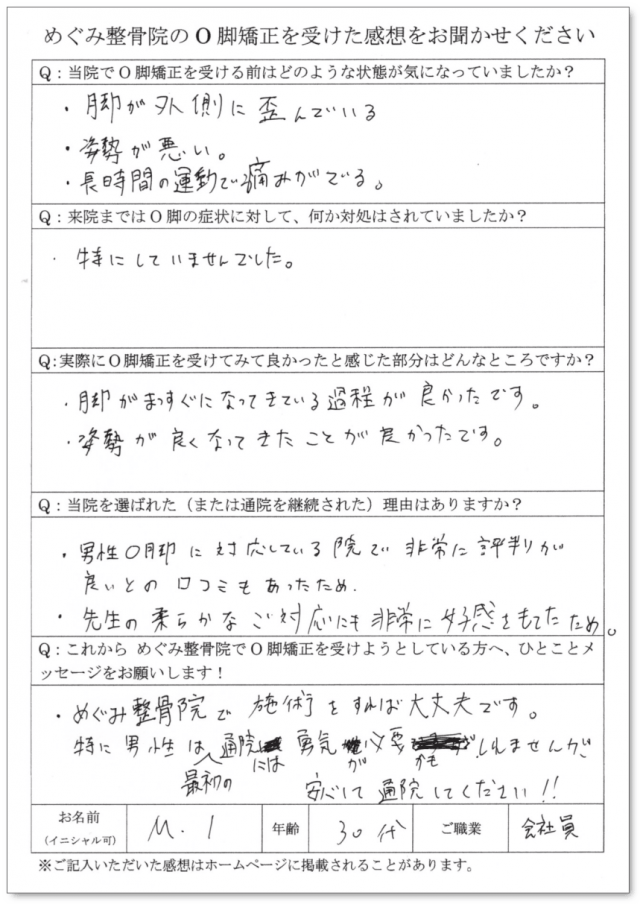 めぐみ整骨院のO脚矯正を受けた感想をお聞かせください
Q：当院でO脚矯正を受ける前はどのような状態が気になっていましたか？
・脚が外側に歪んでいる
・姿勢が悪い。
・長時間の運動で痛みがでる。
Q：来院まではO脚の症状に対して、何か対処はされていましたか？
・特にしていませんでした。
Q：実際にO脚矯正を受けてみて良かったと感じた部分はどんなところですか？
・脚がまっすぐになってきている過程が良かったです。
・姿勢が良くなってきたことが良かったです。
Q：当院を選ばれた（または通院を継続された）理由はありますか？
・男性O脚に対応している院で非常に評判が
良いとの口コミもあったため.
・先生の柔らかなご対応にも非常に好感をもてたため。
Q：これから めぐみ整骨院でO脚矯正を受けようとしている方へ、ひとことメ
ッセージをお願いします！
・めぐみ整骨院で施術をすれば大丈夫です。
特に男性は、最初の通院には勇気が必要かもしれませんが、
安心して通院してください!!
お名前 M.I 年齢 30代 ご職業 会社員
（イニシャル可）
※ご記入いただいた感想はホームページに掲載されることがあります。